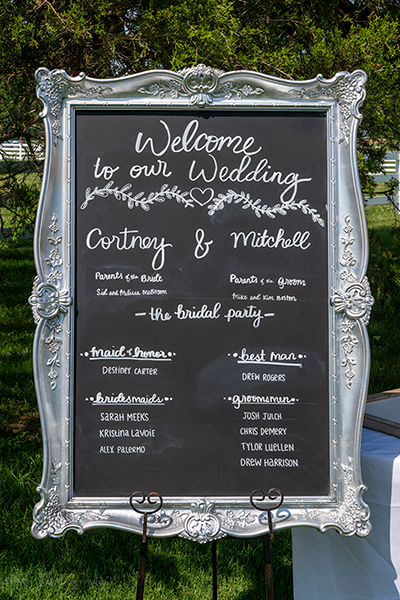 Welcome
to our Wedding
Cortney & Mitchell
Parents of the Bride
Sid and Melissa
Parents of the Groom
Mike and Kim Boston
-the bridal party-
maid of honor
DESTINEY CARTER
best man
DREW ROGERS
bridesmaids
SARAH MEEKS
KRISTINA LAVOIE
ALEX PALERMO
groomsmen
JOSH JULCH
CHRIS DEMERY
TYLOR LUELLEN
DREW HARRISON